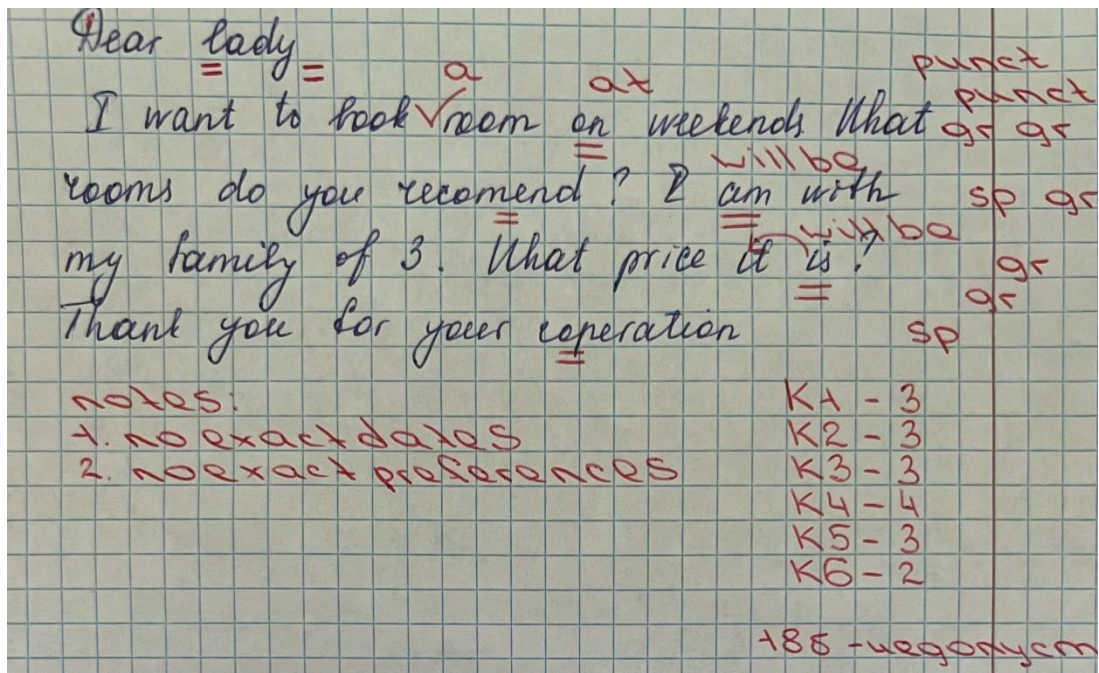 Dear lady
punct
a at punct
I want to book room on weekends What gr gr
will be
rooms do you recomend? I am with sp gr
will be
my family of 3. What price it is? gr
gr
Thank you for your coperation sp
notes: K1 - 3
1. no exact dates K2 - 3
2. no exact preferences K3 - 3
K4 - 4
K5 - 3
K6 - 2
18б - недопуст